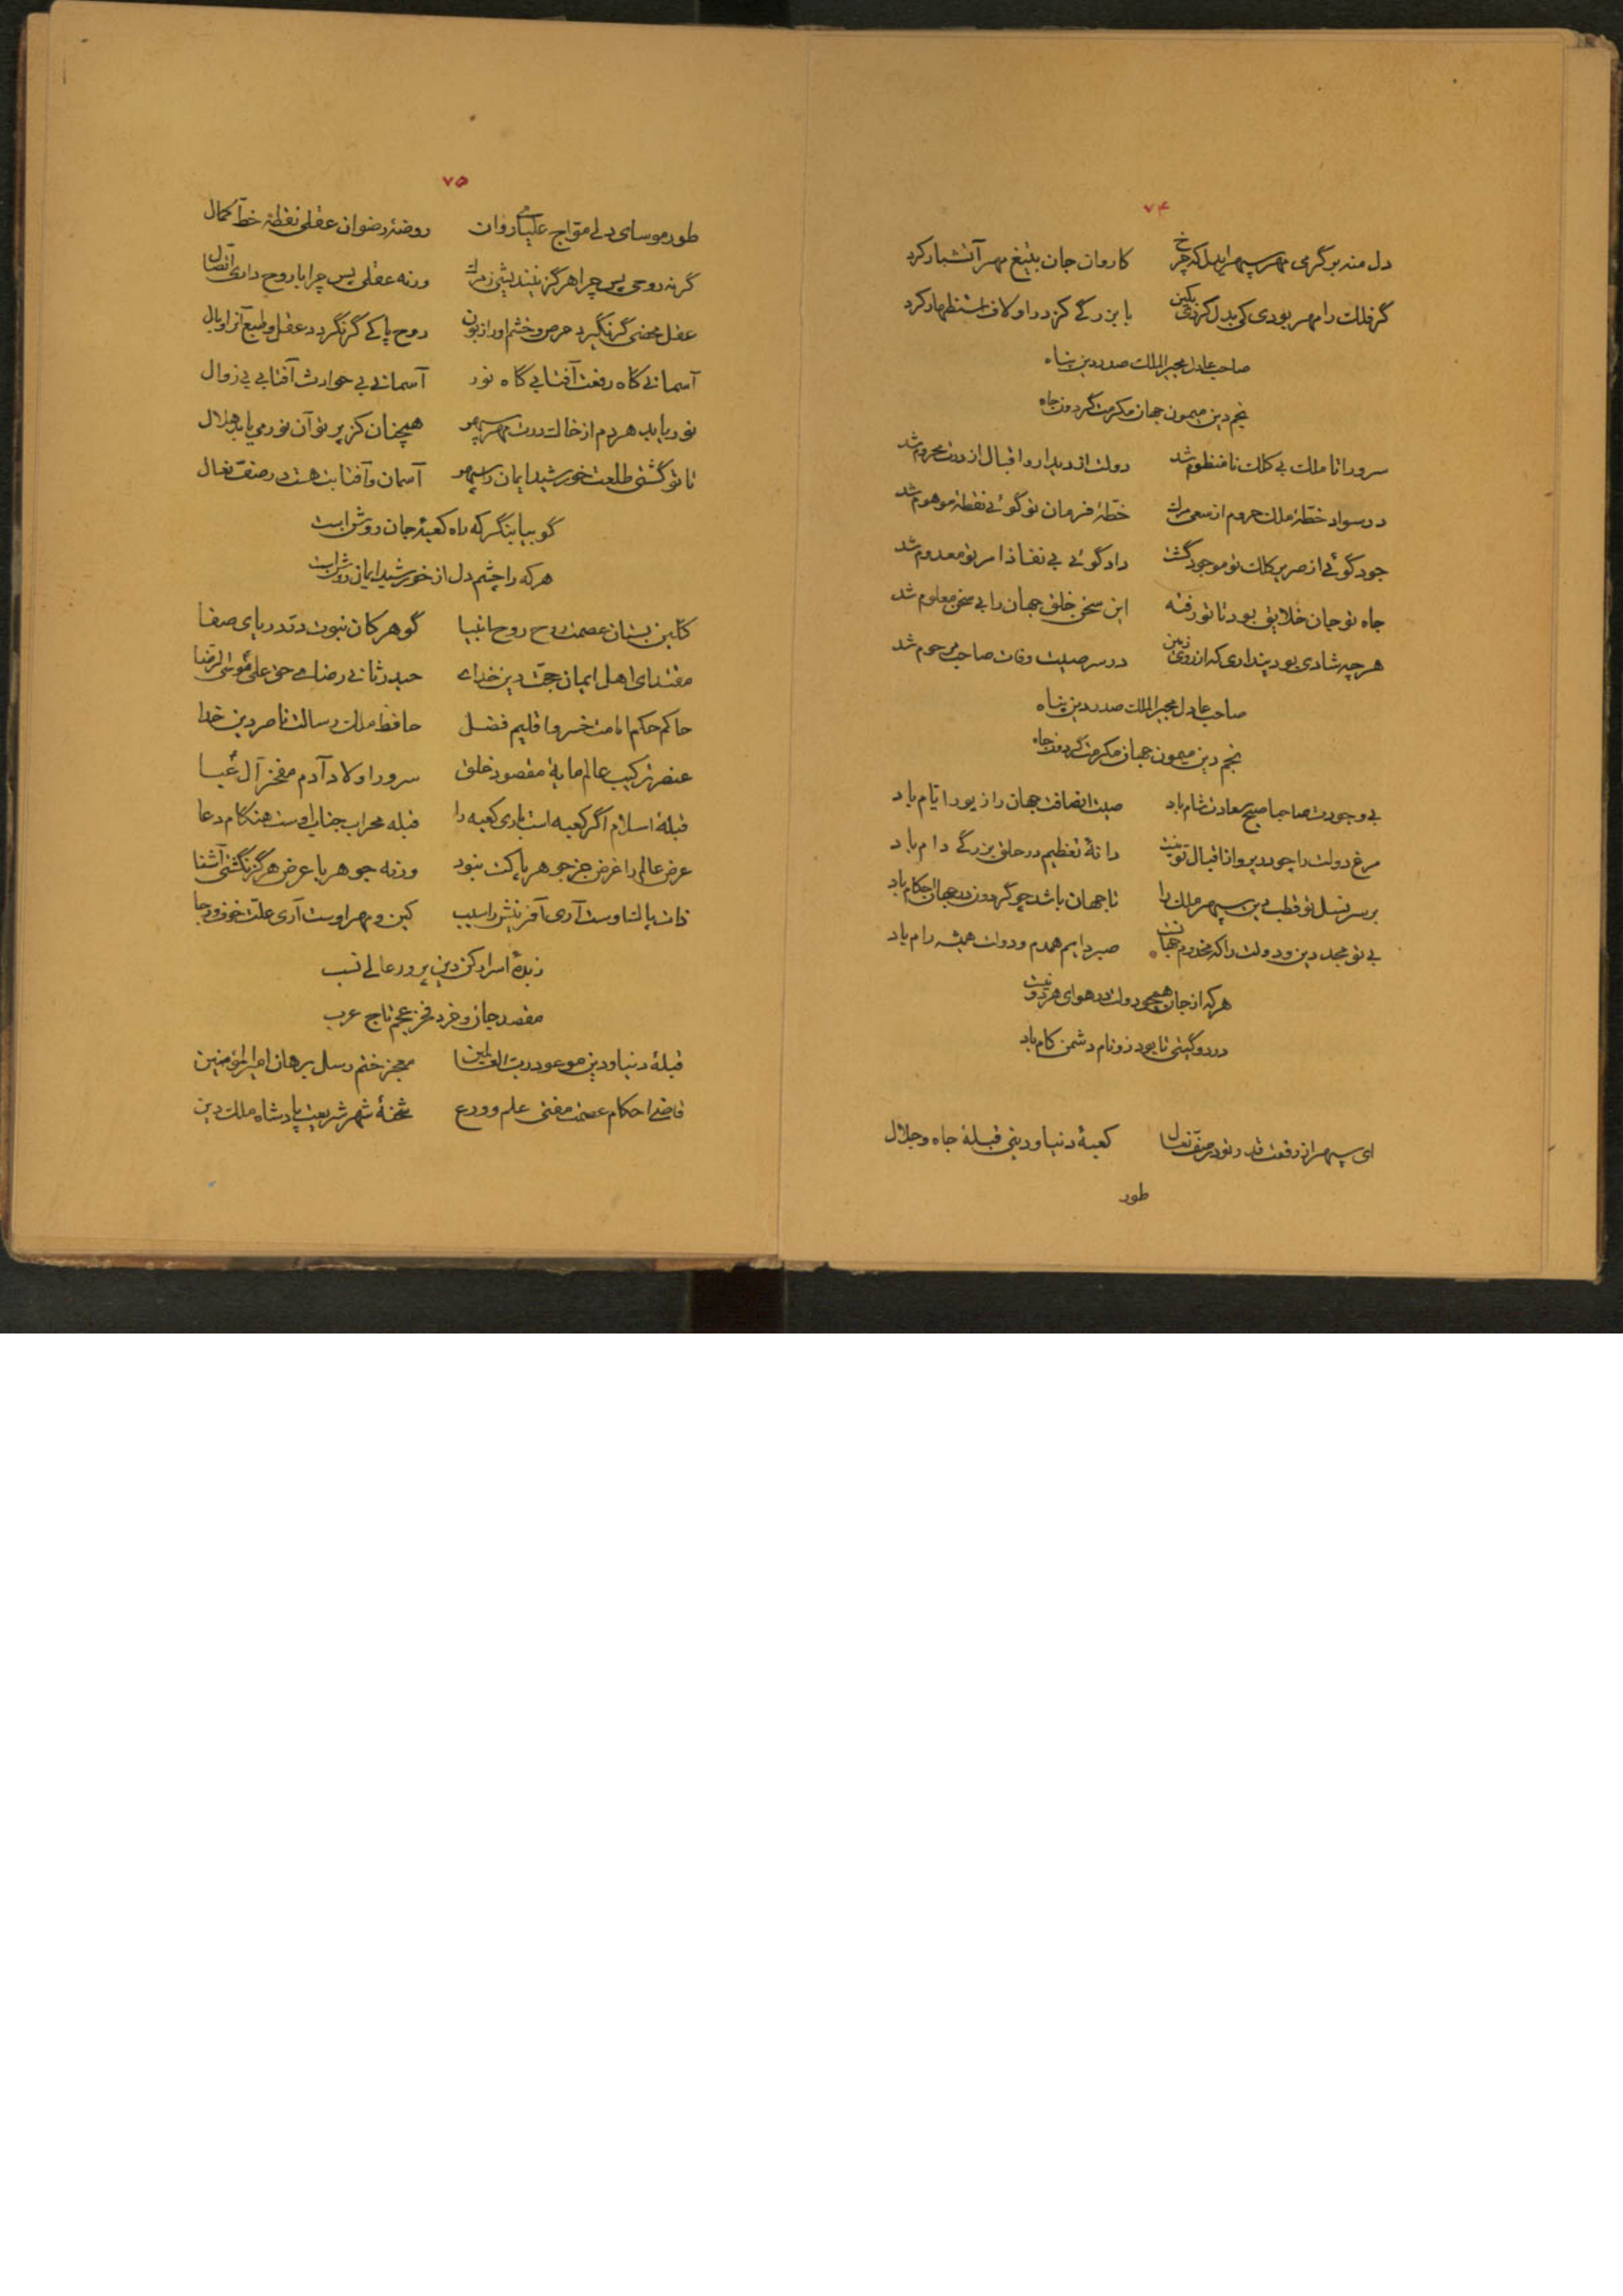 ۷۴
دل منه بر گرمی مهر سپهر ایدل که چرخ کاروان جان بتیغ مهر آتشبار کرد
گر فلک را مهر بودی کی بدل کردی بکین با بزرگی کز در او لاف استظهار کرد
صاحب عادل مجیر الملک صدر دین پناه
نجم دین میمون جهان مکرمت گردون جاه
سرورا تا ملک بی کلکت نامنظوم شد دولت از دیدار و اقبال از درت محروم شد
در سواد خطهٔ ملک حروم از سعی مرگ خطهٔ فرمان تو گوئی نقطهٔ موهوم شد
جود گوئی از صریر کلک تو موجود گشت داد گوئی بی نفاذ امر تو معدوم شد
جاه تو جان خلایق بود تا تو رفتهٔ این سخن خلق جهان را بی سخن معلوم شد
هرچه شادی بود پنداری که از روی زمین در سر صیت وفات صاحب مرحوم شد
صاحب عادل مجیر الملک صدر دین پناه
نجم دین میمون جهان مکرمت گردون جاه
بی وجودت صاحبا صبح سعادت شام باد صیت انصافت جهان را زیور ایام باد
مرغ دولت را چو در پرواز اقبال تو نیست دانهٔ تعظیم در حلق بزرگی دام باد
بر سر نسل تو قطب دین سپهر ملک را تا جهان باشد چو گردون در جهان احکام باد
بی تو مجد دین و دولت را که مخدوم جهانست صبر دایم همدم و دولت همیشه رام باد
هرکه از جان همچو دولت در هوای هر دو نیست
در دو گیتی تا بود زو نام دشمن کام باد
ای سپهر از رفعت قدر تو در صف نعال کعبهٔ دنیا و دینی قبلهٔ جاه و جلال
طور
۷۵
طور موسای دلی معراج عیسای روان روضهٔ رضوان عقلی نقطهٔ خط کمال
گر نه روحی پس چرا هرگز نبیندیشی ز مرگ ورنه عقلی پس چرا با روح داری اتصال
عقل محضی گر نگیرد حرص و خشم او را زبون روح پاکی گر نگردد عقل و طبع آنرا وبال
آسمانی گاه رفعت آفتابی گاه نور آسمانی بی حوادث آفتابی بی زوال
نور یابد هر دم از خاک درت مهر سپهر همچنان کز پرتو آن نور می یابد هلال
تا تو گشتی طلعت خورشید ایمان را سپهر آسمان و آفتابت هست در صف نعال
گو بیا بنگر که راه کعبهٔ جان روشن است
هرکه را چشم دل از خورشید ایمان روشن است
گلبن بستان عصمت روح روح انبیا گوهر کان نبوت در دریای صفا
مقتدای اهل ایمان حجت دین خدای حیدر ثانی رضای حق علی موسی الرضا
حاکم حکم امامت خسرو اقلیم فضل حافظ ملک رسالت ناصر دین خدا
عنصر ترکیب عالم مایهٔ مقصود خلق سرور اولاد آدم مفخر آل عبا
قبلهٔ اسلام اگر کعبه است باری کعبه را قبله محراب جناب اوست هنگام دعا
عرض عالم را غرض جز جوهر پاکت نبود ورنه جوهر با عرض هرگز نگشتی آشنا
ذات پاک اوست آری آفرینش را سبب کین و مهر اوست آری علت خوف و رجا
زبدهٔ اسرار کن دین پرور عالی نسب
مقصد جان و خرد فخر عجم تاج عرب
قبلهٔ دنیا و دین موعود رب العالمین معجز ختم رسل برهان امیر المؤمنین
قاضی احکام عصمت مفتی علم و ورع شحنهٔ شهر شریعت پادشاه ملک دین